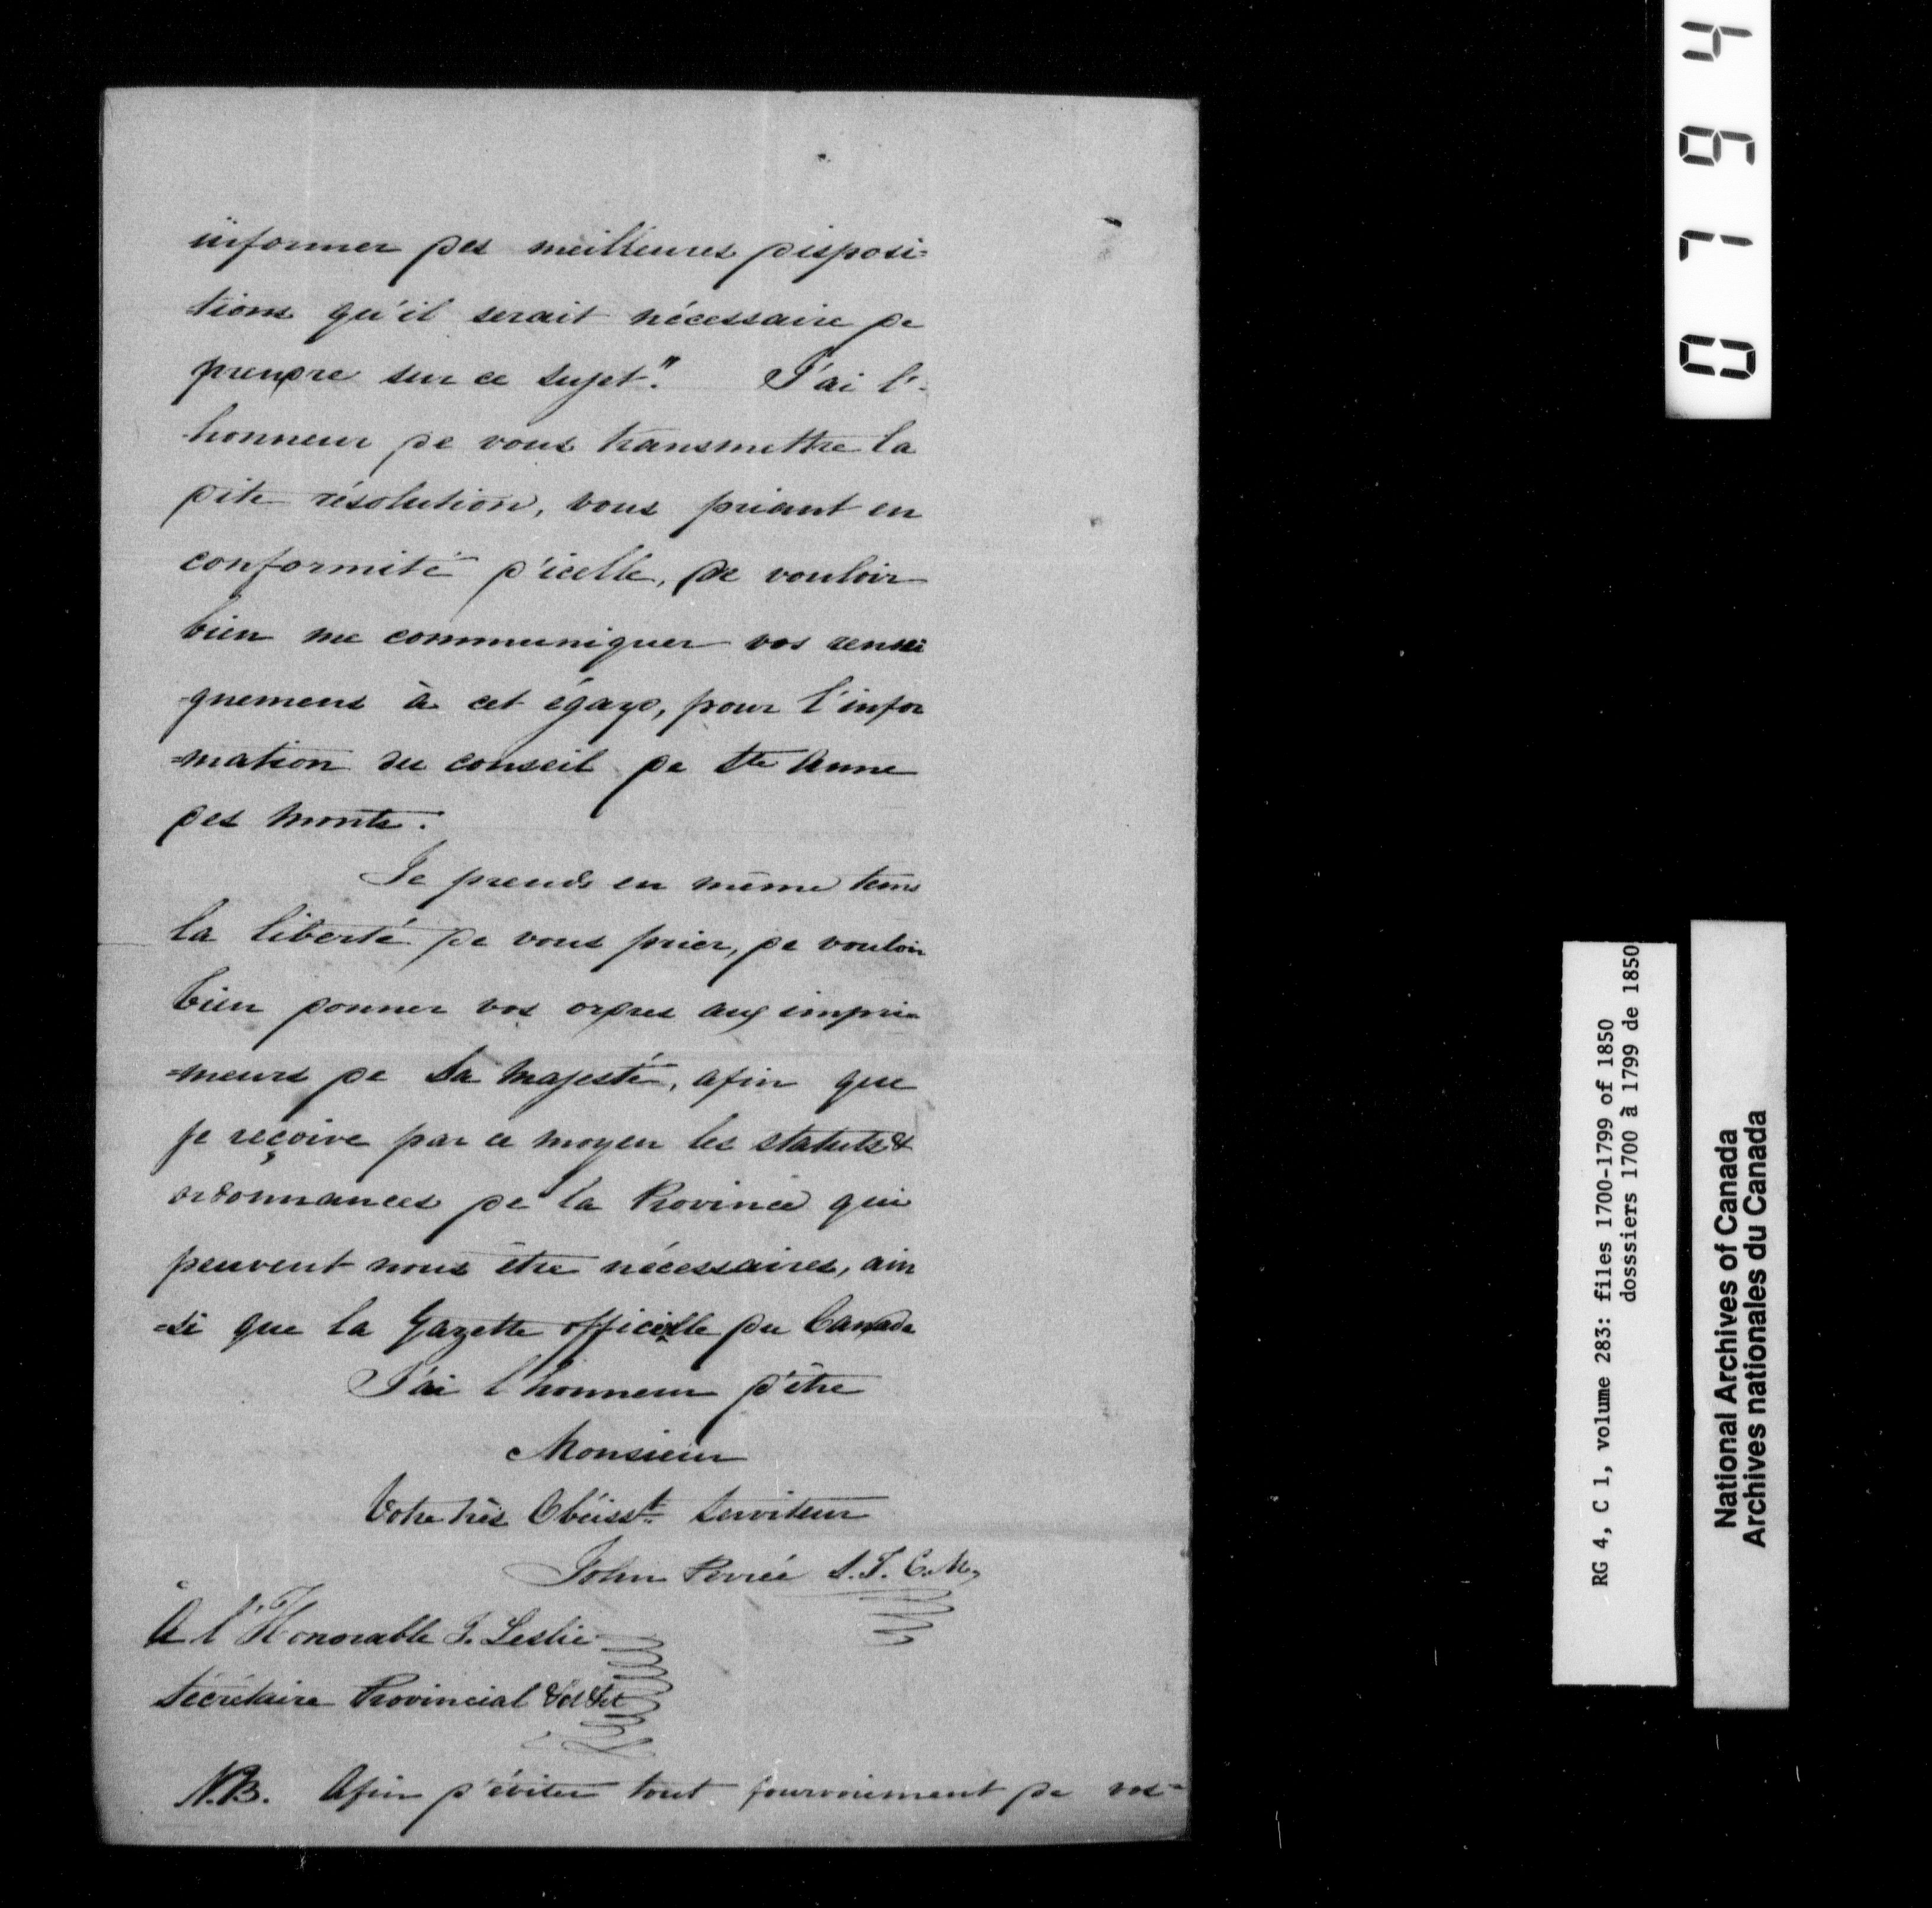 informer des meilleures disposi=
=tions qu'il serait nécessaire de
prendre sur ce sujet." J'ai l'-
-honneur de vous transmettre la
dite résolution, vous priant en
conformité d'icelle, de vouloir
bien me communiquer vos rensei
-gnemens à cet égard, pour l'infor
=mation du conseil de Ste Anne
des Monts.
Je prends en même tems
la liberté de vous prier, de vouloir
bien donner vos ordres aux impri=
=meurs de Sa Majesté, afin que
je reçoive par ce moyen les statuts &
ordonnances de la Province qui
peuvent nous être nécessaires, ain
=si que la Gazette officielle du Canada
J'ai l'honneur d'être
Monsieur
Votre très Obéisst. Serviteur
John Perrée S.T.C.M.
À l'Honorable J. Leslie
Sécrétaire Provincial &c &c
N.B. Afin d'éviter tout fourvoiement de vos=
0794
RG 4, C 1, volume 283: files 1700-1799 of 1850
dosssiers 1700 à 1799 de 1850
National Archives of Canada
Archives nationales du Canada